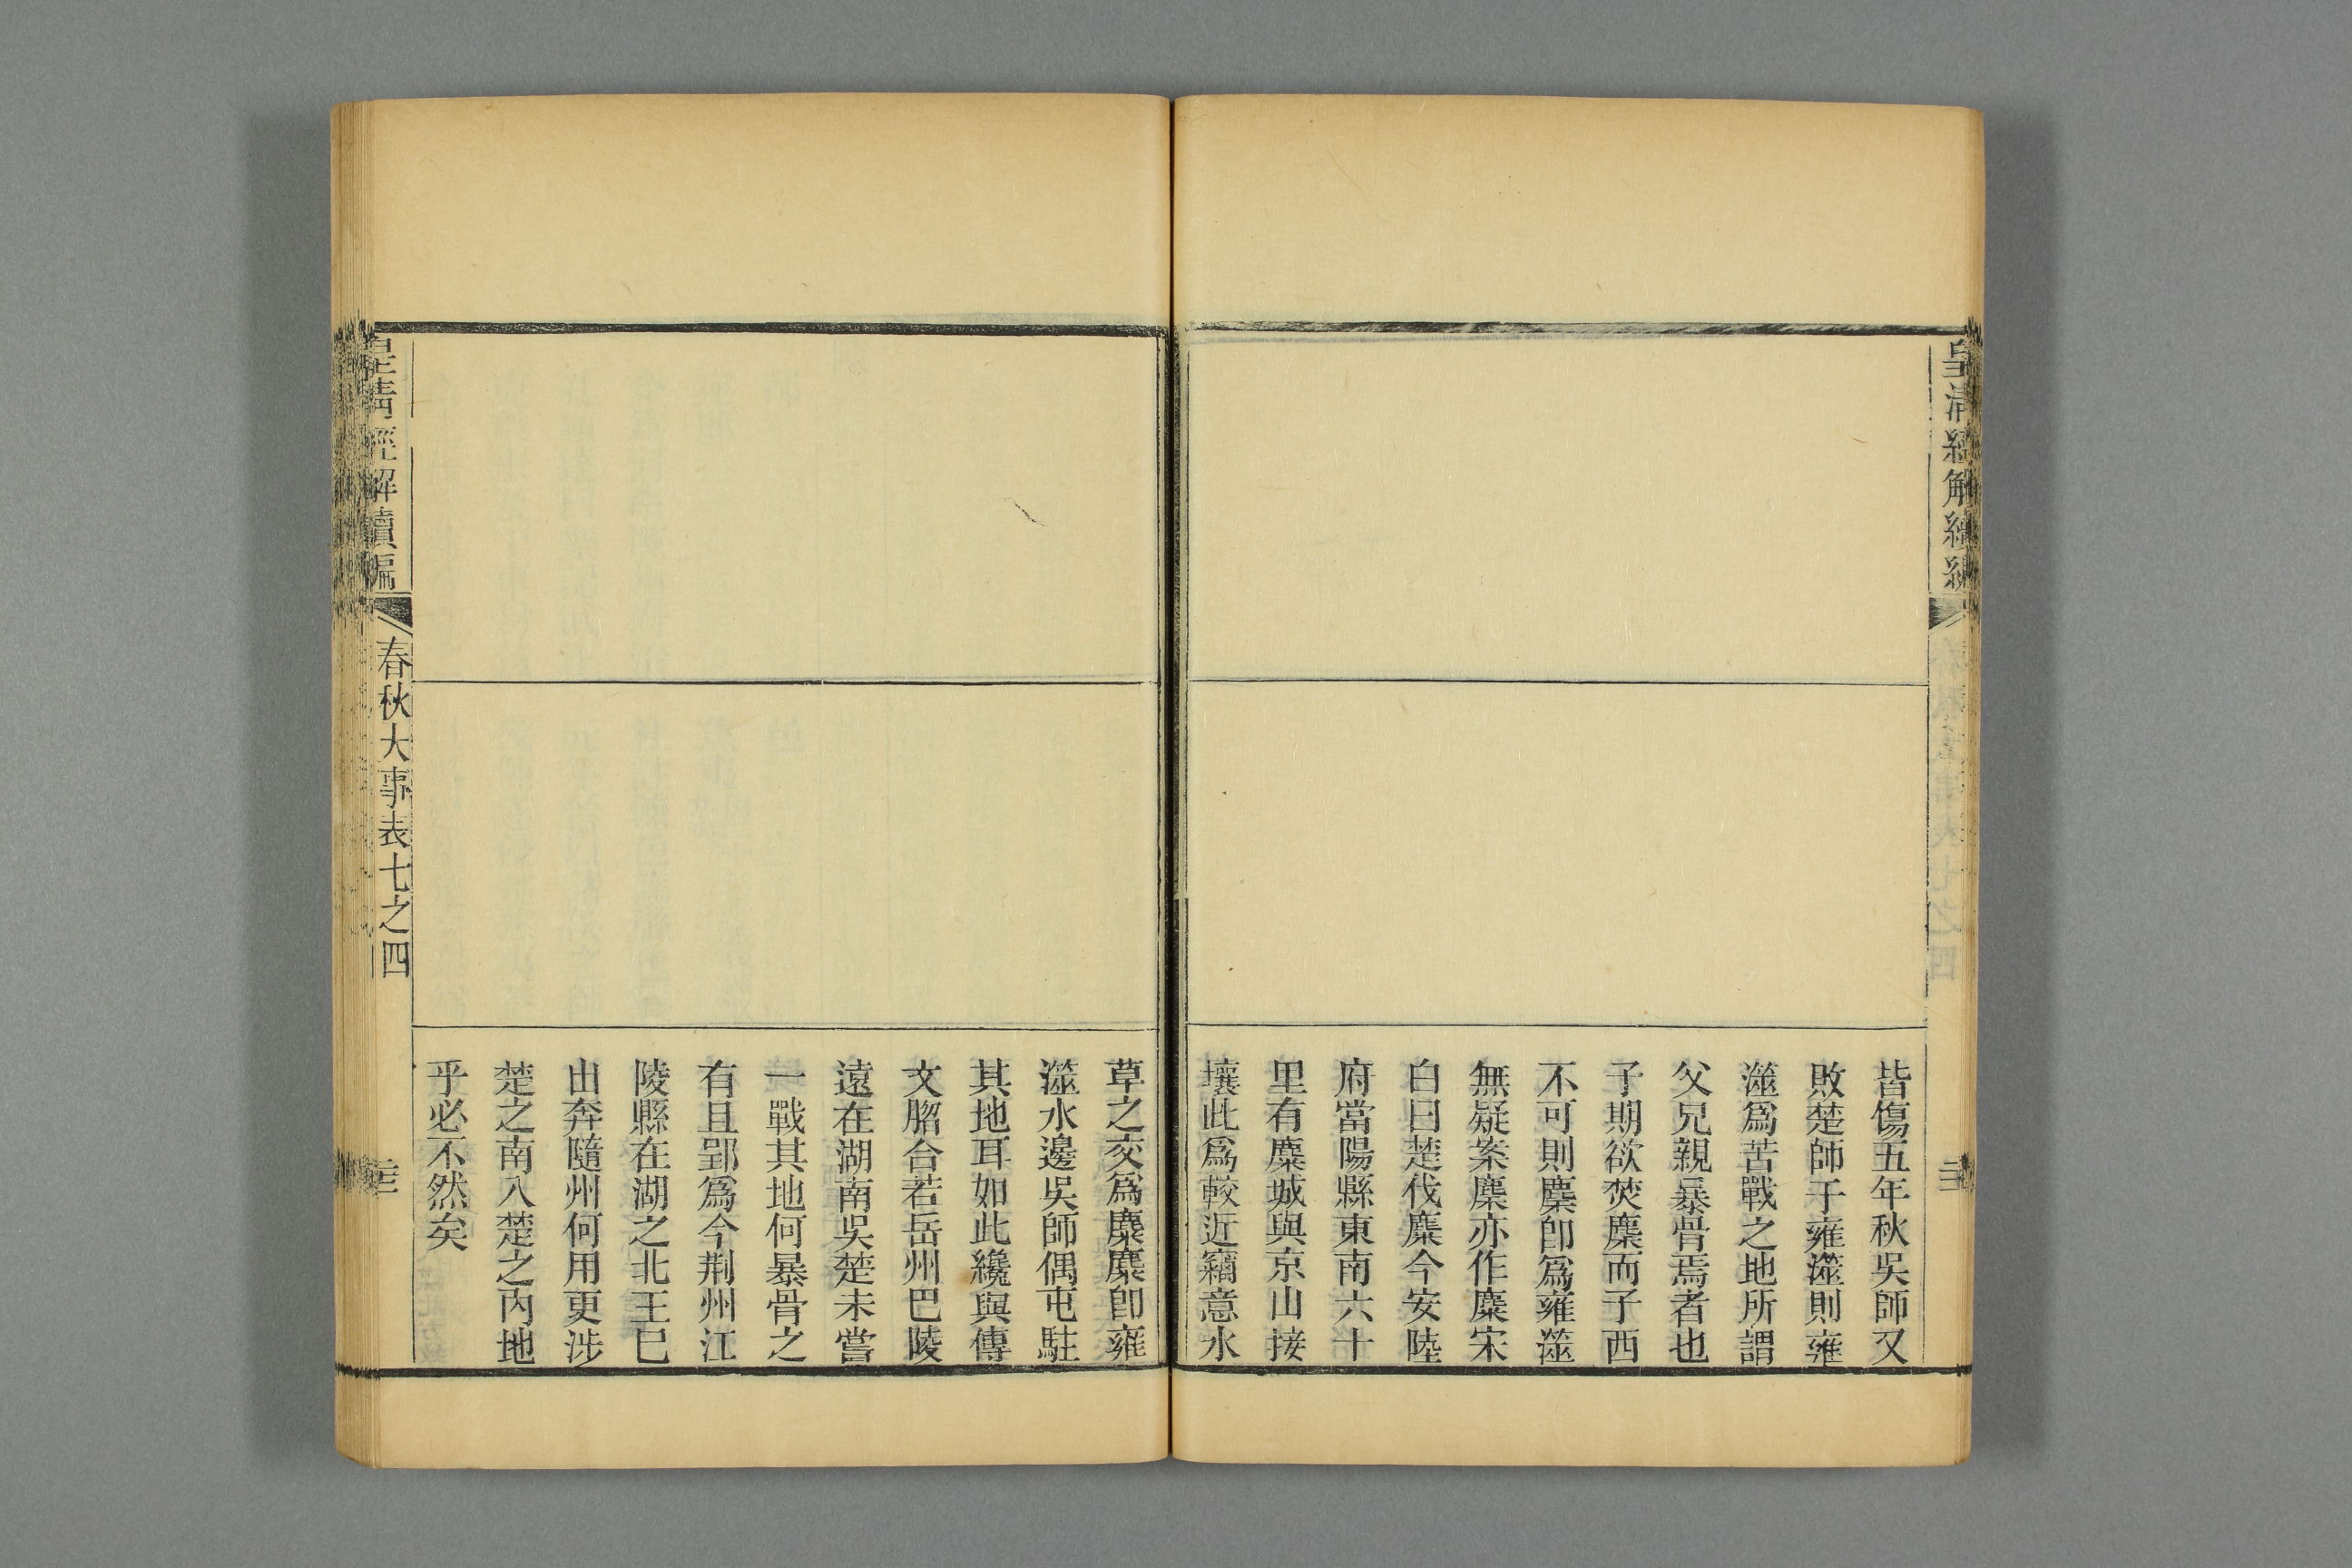 皇清經解續編
皆傷五年秋吳師又
敗楚師于雍澨則雍
澨爲苦戰之地所謂
父兄親暴骨焉者也
子期欲焚麇而子西
不可則麇卽爲雍澨
無疑案麇亦作麋宋
白曰楚伐麋今安陸
府當陽縣東南六十
里有麋城與京山接
壤此爲較近竊意水
草之交爲麋麋卽雍
澨水邊吳師偶屯駐
其地耳如此纔與傳
文脗合若岳州巴陵
遠在湖南吳楚未嘗
一戰其地何暴骨之
有且郢爲今荆州江
陵縣在湖之北王已
出奔隨州何用更涉
楚之南入楚之內地
乎必不然矣
皇清經解續編
春秋大事表七之四